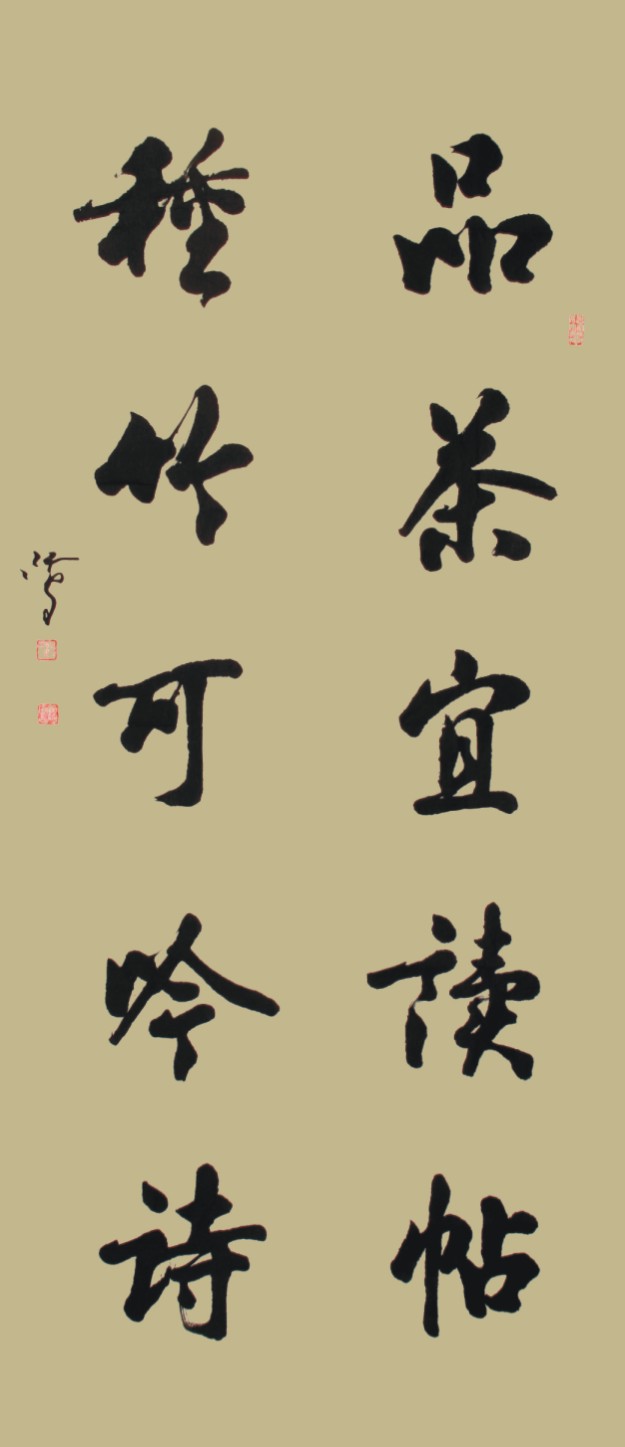 品茶宜读帖
種竹可吟诗